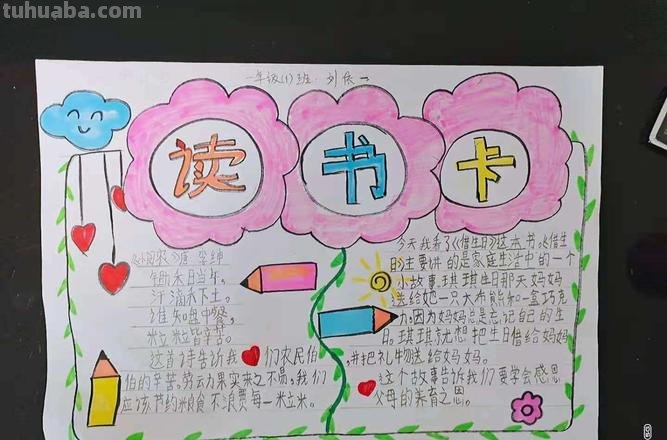 tuhuaba.com
一年级(1)班: 刘依一
读书卡
《悯农》唐 李绅
锄禾日当午。
汗滴禾下土。
谁知盘中餐,
粒粒皆辛苦。
这首诗告诉我们农民伯
伯的辛苦。劳动力果实来之不易。我们
应该节约粮食不浪费每一粒米。
今天我看了《借生日》这本书。《借生
日》主要讲的是家庭生活中的一个
小故事琪琪生日那天妈妈
送给她一只大布熊和一盒巧克
力。因为妈妈总是忘记自己的生
日。琪琪就想把生日借给妈妈
,并把礼物送给妈妈。
这个故事告诉我们要学会感恩
父母的养育之恩。